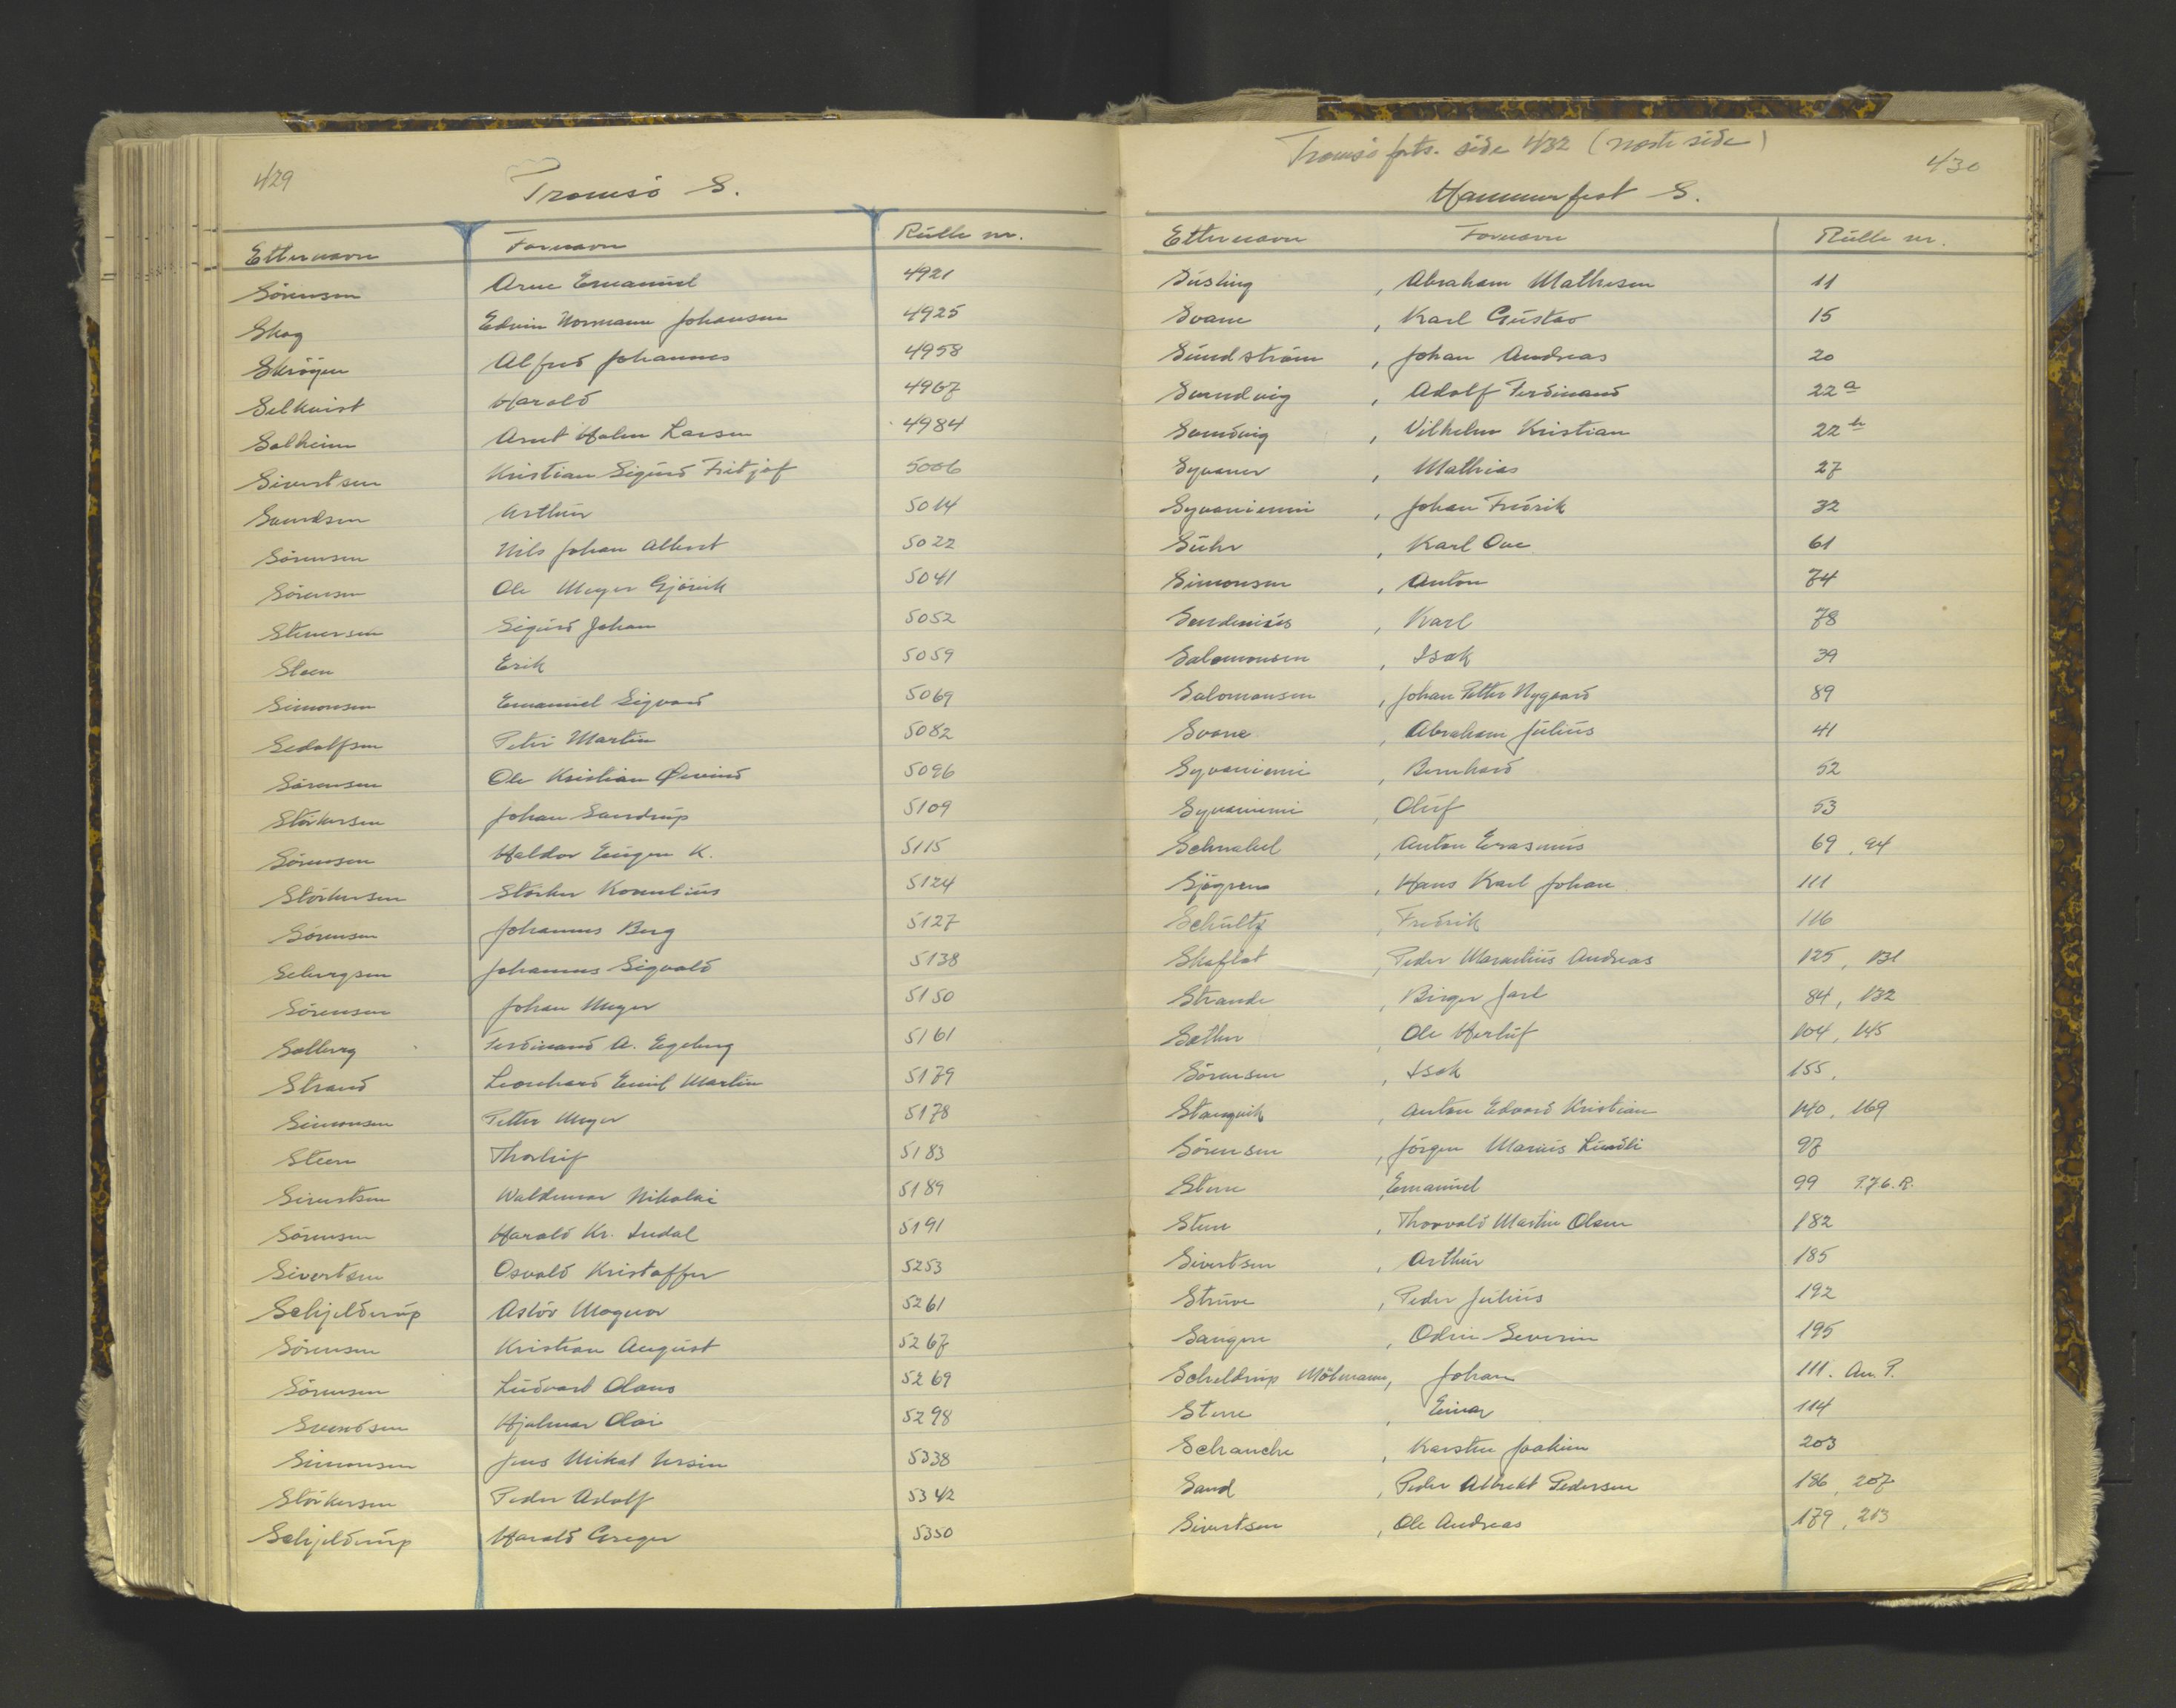 429
Tromsö S.
Etternavn Fornavn Rulle nr.
Sörensen Arne Emanuel 4921
Skog Edvin Normann Johansen 4925
Skrögen Alfred Johannes 4958
Selkvist Harald 4967
Solheim Arnt Holm Larsen 4984
Sivertsen Kristian Sigurd Fritjof 5006
Svendsen Arthur 5014
Sörensen Nils Johan Albert 5022
Sörensen Ole Meyer Gjörvik 5041
Stenersen Sigurd Johan 5052
Steen Erik 5059
Simonsen Emanuel Sigvard 5069
Sedolfsen Peter Martin 5082
Sörensen Ole Kristian Øivind 5096
Störkersen Johan Sandrup 5109
Sörensen Haldor Eugen K. 5115
Störkersen Störker Kornelius 5124
Sörensen Johannes Berg 5127
Sebergsen Johannes Sigvald 5138
Sörensen Johan Meyer 5150
Solberg Ferdinand A. Egeberg 5161
Strand Leonhard Emil Martin 5179
Simonsen Petter Meyer 5178
Steen Thorleif 5183
Sivertsen Waldemar Nikolai 5189
Sörensen Harald Kr. Indal 5191
Sivertsen Osvald Kristoffer 5253
Schjelderup Aslöv Magnor 5261
Sörensen Kristian August 5267
Sörensen Ludvart Olaus 5269
Svendsen Hjalmar Olai 5298
Simonsen Jens Mikal Ursin 5338
Störkersen Peder Adolf 5342
Schjelderup Harald Greger 5350
Tromsö forts. side 432 (neste side)
430
Hammerfest S.
Etternavn Fornavn Rulle nr.
Susling, Abraham Mathesen 11
Svane, Karl Gustav 15
Sundström, Johan Andreas 20
Svendvig, Adolf Ferdinand 22 a
Svendvig, Vilhelm Kristian 22 b
Syvaner, Mathias 27
Syvaniemi, Johan Fredrik 32
Suhr, Karl Ove 61
Simonsen, Anton 74
Sendenius, Karl 78
Salomonsen, Isak 39
Salomonsen, Johan Petter Nygaard 89
Svane, Abraham Julius 41
Syvaniemi, Bernhard 52
Syvaniemi, Oluf 53
Schnabel, Anton Erasmus 69, 94
Sjögren, Hans Karl Johan 111
Schultz, Fredrik 116
Skaflot, Peder Marselius Andreas 125, 131
Strande, Birger Jarl 84, 132
Sæther, Ole Herluf 104, 145
Sörensen, Isak 155,
Stangvik, Anton Edvard Kristian 140, 169
Sörensen, Jörgen Marius Lundli 97
Stene, Emanuel 99 P.76.R.
Stene, Thorvald Martin Olsen 182
Sivertsen, Arthur 185
Struve, Peder Julius 192
Saugen, Odin Severin 195
Scheldrup Mötmann, Johan 111. An. P.
Stene, Einar 114
Schanche, Karsten Joakim 203
Sand, Peder Albrekt Pedersen 186, 207
Sivertsen, Ole Andreas 179, 213